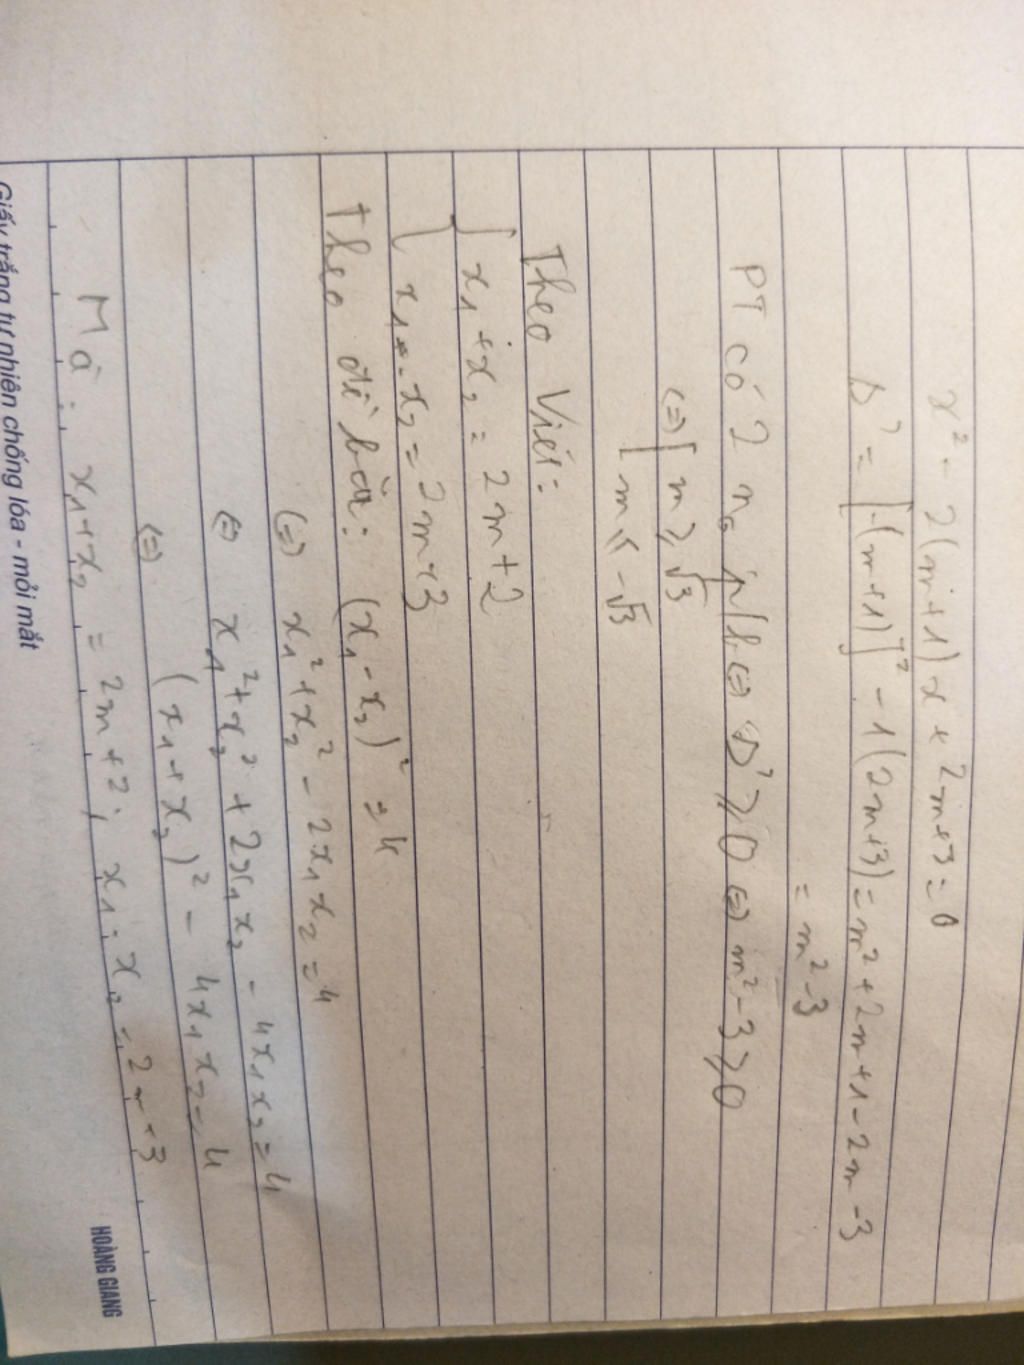 x² - 2(m+1)x + 2m+3 = 0
Δ' = [-(m+1)]² - 1(2m+3) = m² + 2m + 1 - 2m - 3
= m² - 3
PT có 2 n₀ p/b ⇔ Δ' ≥ 0 ⇔ m² - 3 ≥ 0
⇔ [ m ≥ √3
[ m ≤ -√3
Theo Viét:
{ x₁ + x₂ = 2m + 2
{ x₁ . x₂ = 2m+3
Theo đề bài: (x₁ - x₂)² = 4
⇔ x₁² + x₂² - 2x₁x₂ = 4
⇔ x₁² + x₂² + 2x₁x₂ - 4x₁x₂ = 4
⇔ (x₁ + x₂)² - 4x₁x₂ = 4
Mà: x₁ + x₂ = 2m + 2; x₁ . x₂ = 2m+3
Giấy trắng tự nhiên chống lóa - mỏi mắt
HOÀNG GIANG